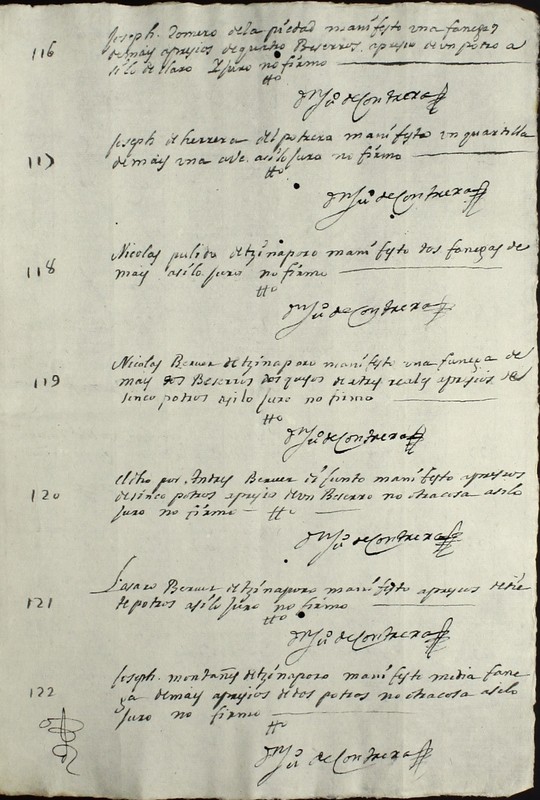 116 Joseph Romero dela piedad manifesto una fanega
demais apresios de quatro Beserros apresio de un potro a
silo de claro Y juro no firmo
tto
Juo de Contrera
117 Joseph de herrera del potrero manifesto un quartilla
demais una ave asilo juro no firmo
tto
Juo de Contrera
118 Nicolas pulido de tzinaporo manifesto dos fanegas de
mais asilo juro no firmo
tto
Juo de Contrera
119 Nicolas Berver de tzinaporo manifesto una fanega de
mais dos Beserros dos de a tres reales apresios de
sinco potros asilo juro no firmo
tto
Juo de Contrera
120 dicho por Andres Berver difunto manifesto apresios
de sinco potros apresio de un Beserro no otra cosa asilo
juro no firmo tto
Juo de Contrera
121 Lasaro Berver de tzinaporo manifesto apresios de sie
te potros asilo juro no firmo
tto
Juo de Contrera
122 Joseph montañes de tzinaporo manifesto media fane
ga demais apresios de dos potros no otra cosa asilo
juro no firmo
tto
Juo de Contrera